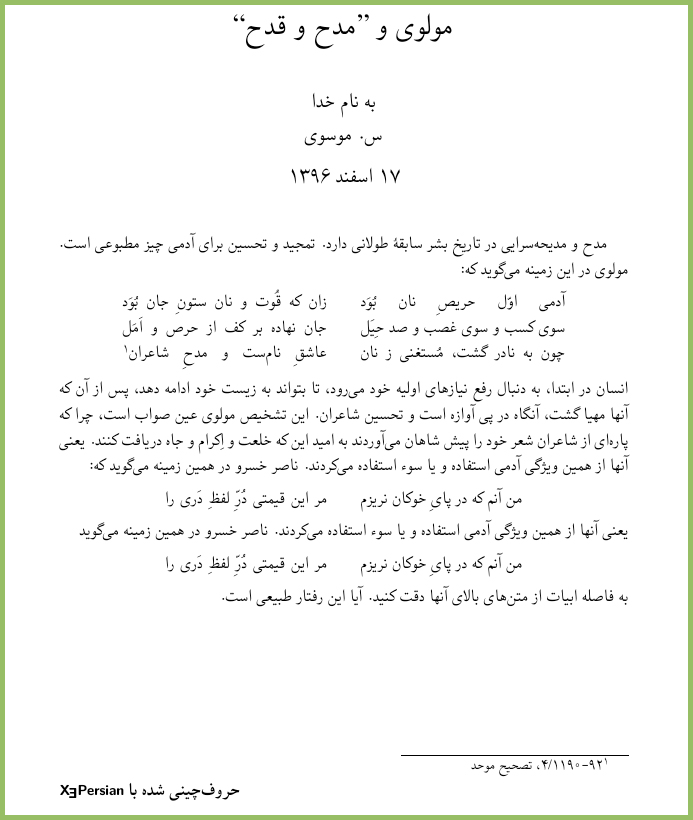 مولوی و ”مدح و قدح“
به نام خدا
س. موسوی
۱۷ اسفند ۱۳۹۶
مدح و مدیحه‌سرایی در تاریخ بشر سابقهٔ طولانی دارد. تمجید و تحسین برای آدمی چیز مطبوعی است.
مولوی در این زمینه می‌گوید که:
آدمی اوّل حریصِ نان بُوَد زان که قُوت و نان ستونِ جان بُوَد
سوی کسب و سوی غصب و صد حِیَل جان نهاده بر کف از حرص و اَمَل
چون به نادر گشت، مُستغنی ز نان عاشقِ نام‌ست و مدحِ شاعران۱
انسان در ابتدا، به دنبال رفع نیازهای اولیه خود می‌رود، تا بتواند به زیست خود ادامه دهد، پس از آن که
آنها مهیا گشت، آنگاه در پی آوازه است و تحسین شاعران. این تشخیص مولوی عین صواب است، چرا که
پاره‌ای از شاعران شعر خود را پیش شاهان می‌آوردند به امید این که خلعت و اِکرام و جاه دریافت کنند. یعنی
آنها از همین ویژگی آدمی استفاده و یا سوء استفاده می‌کردند. ناصر خسرو در همین زمینه می‌گوید که:
من آنم که در پایِ خوکان نریزم مر این قیمتی دُرِّ لفظِ دَری را
یعنی آنها از همین ویژگی آدمی استفاده و یا سوء استفاده می‌کردند. ناصر خسرو در همین زمینه می‌گوید
من آنم که در پایِ خوکان نریزم مر این قیمتی دُرِّ لفظِ دَری را
به فاصله ابیات از متن‌های بالای آنها دقت کنید. آیا این رفتار طبیعی است.
۱۴/۱۱۹۰-۹۲، تصحیح موحد
حروف‌چینی شده با XƎPersian